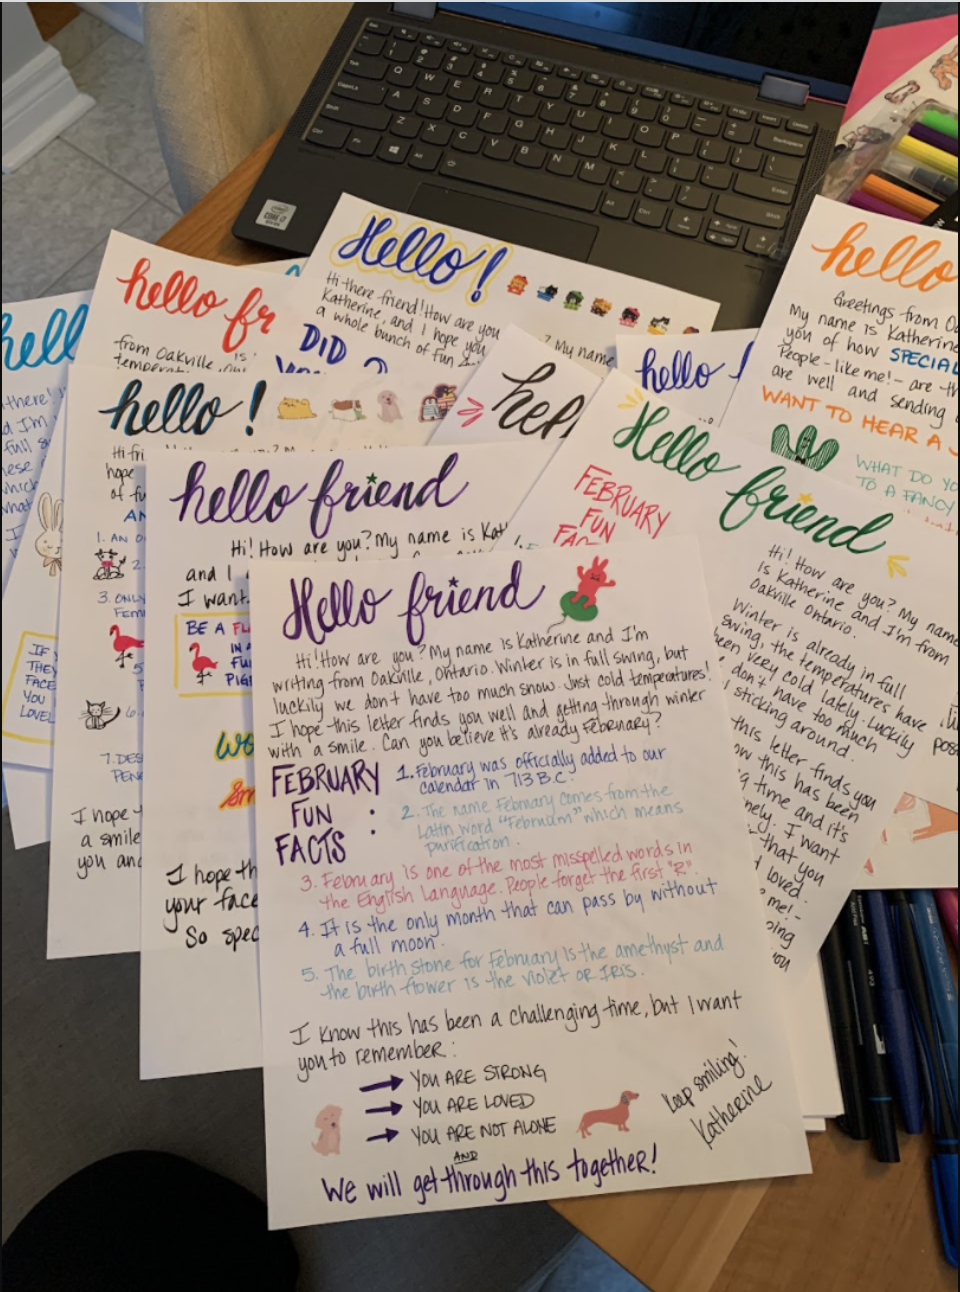 Hello!
Hi there friend! How are you
Katherine, and I hope you
a whole bunch of fun
? My name
hello fr
from Oakville,
DID
hello
Greetings from Oa
My name is Katherine
you of how SPECIAL
People - like me! - are th
are well and sending
WANT TO HEAR A
WHAT DO YO
TO A FANCY
hell
hello!
Hi fri
hope
of fu
1. AN O
2.
3. ONLY
FEM
5
6.
7. DES
PEN
I hope
a smile
you and
IF
THEY
FACE
YOU
LOVEL
hel
hello !
hello friend
Hi! How are you? My name is Kat
and I
I want
BE A FL
IN A
FU
PIG
I hope th
your face
So spec
Hello friend
FEBRUARY
FUN
FAC
Hi! How are you? My name
is Katherine and I'm from
Oakville Ontario.
Winter is already in full
swing, the temperatures have
been very cold lately. Luckily
don't have too much
sticking around.
this letter finds you
ow this has been
g time and it's
nely. I want
that you
loved.
me! -
oing
you
Hello friend
Hi! How are you? My name is Katherine and I'm
writing from Oakville, Ontario. Winter is in full swing, but
luckily we don't have too much snow. Just cold temperatures!
I hope this letter finds you well and getting through winter
with a smile. Can you believe it's already February?
FEBRUARY
FUN :
FACTS
1. February was officially added to our
calendar in 713 B.C
2. The name February comes from the
Latin word "Februam" which means
purification.
3. February is one of the most misspelled words in
the English Language. People forget the first "R".
4. It is the only month that can pass by without
a full moon.
5. The birth stone for February is the amethyst and
the birth flower is the violet or Iris.
I know this has been a challenging time, but I want
you to remember:
→ YOU ARE STRONG
→ YOU ARE LOVED
→ YOU ARE NOT ALONE
AND
We will get through this together!
Keep smiling!
Katherine